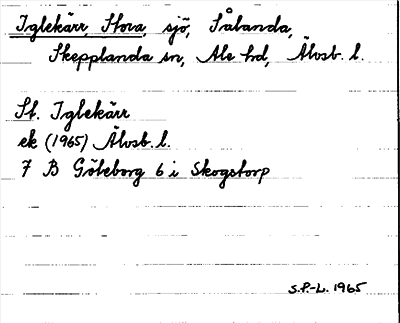 Iglekärr, Stora, sjö, Sålanda,
Skepplanda sn, Ale hd, Älvsb. l.
St. Iglekärr
ek (1965) Älvsb. l.
7 B Göteborg 6 i Skogstorp
S.P.-L. 1965